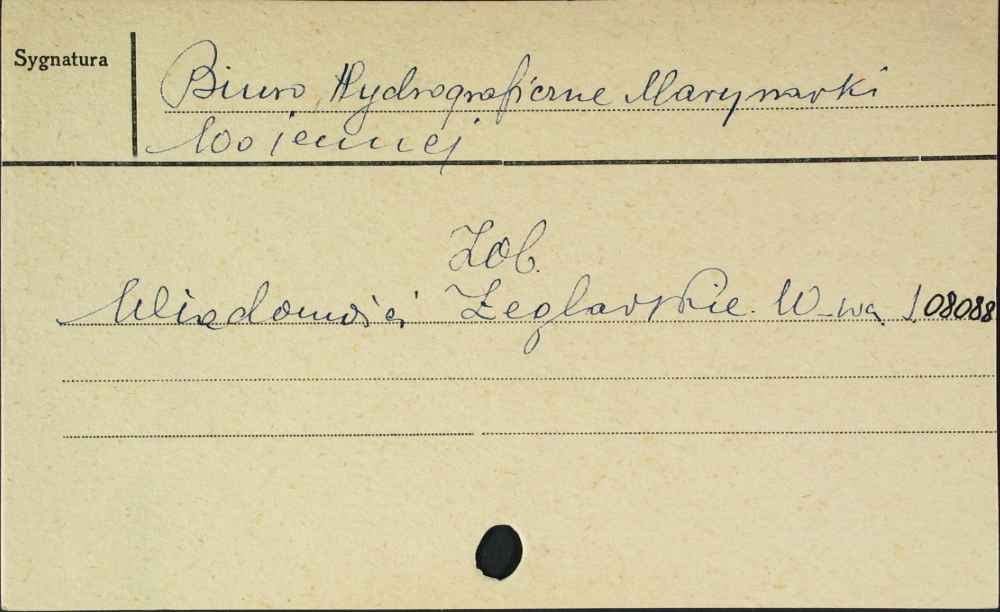 Sygnatura
Biuro Hydrograficzne Marynarki
Wojennej
Zob.
Wiadomości Żeglarskie. W-wa J.08088